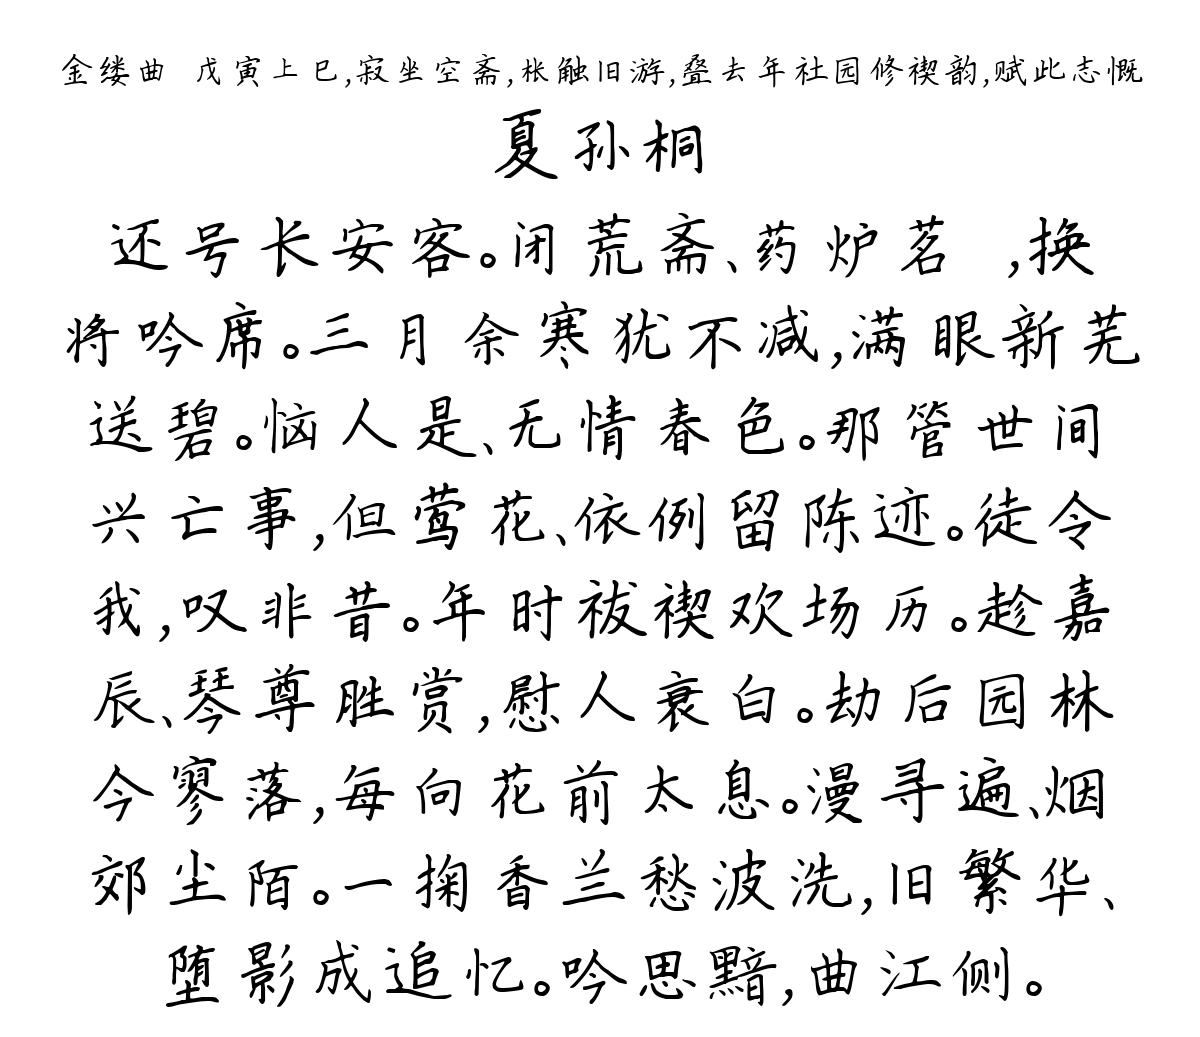 金缕曲 戊寅上巳,寂坐空斋,枨触旧游,叠去年社园修禊韵,赋此志慨
夏孙桐
还号长安客。闭荒斋、药炉茗 ,换
将吟席。三月余寒犹不减,满眼新芜
送碧。恼人是、无情春色。那管世间
兴亡事,但莺花、依例留陈迹。徒令
我,叹非昔。年时祓禊欢场历。趁嘉
辰、琴尊胜赏,慰人衰白。劫后园林
今寥落,每向花前太息。漫寻遍、烟
郊尘陌。一掬香兰愁波洗,旧繁华、
堕影成追忆。吟思黯,曲江侧。